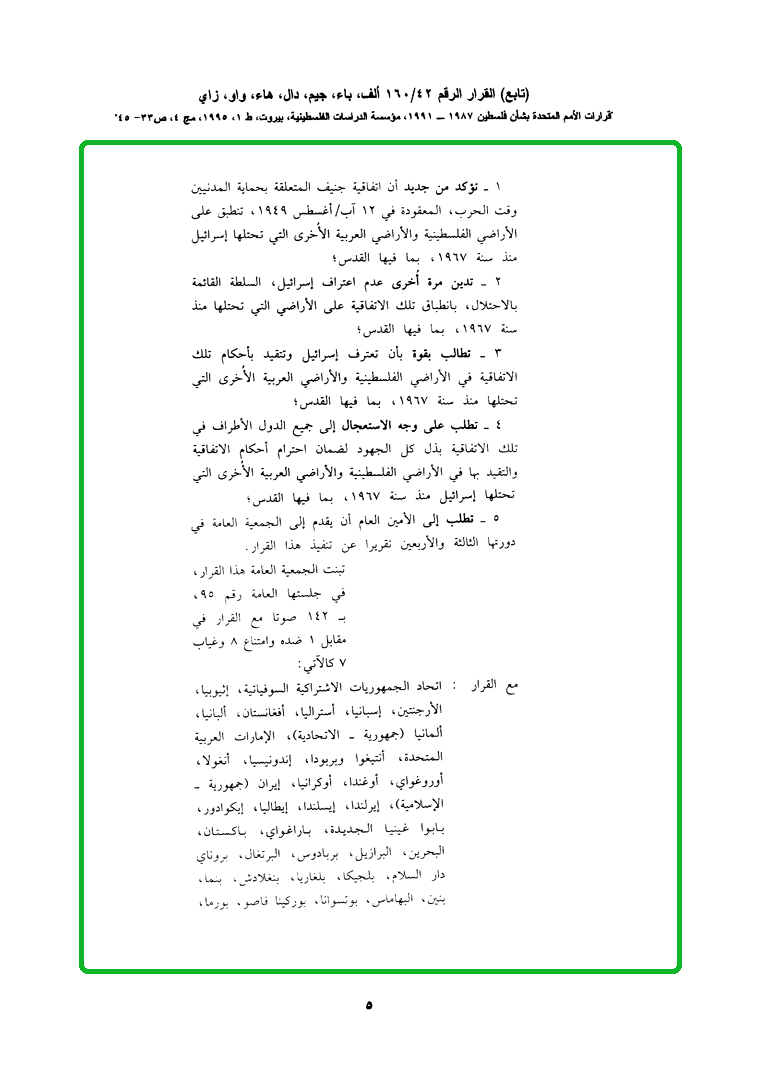 (تابع) القرار الرقم ١٦٠/٤٢ ألف، باء، جيم، دال، هاء، واو، زاي
"قرارات الأمم المتحدة بشأن فلسطين ١٩٨٧ ــ ١٩٩١، مؤسسة الدراسات الفلسطينية، بيروت، ط ١، ١٩٩٥، مج ٤، ص٣٣- ٤٥"
١ ـ تؤكد من جديد أن اتفاقية جنيف المتعلقة بحماية المدنيين
وقت الحرب، المعقودة في ١٢ آب/أغسطس ١٩٤٩، تنطبق على
الأراضي الفلسطينية والأراضي العربية الأُخرى التي تحتلها إسرائيل
منذ سنة ١٩٦٧، بما فيها القدس؛
٢ ـ تدين مرة أُخرى عدم اعتراف إسرائيل، السلطة القائمة
بالاحتلال، بانطباق تلك الاتفاقية على الأراضي التي تحتلها منذ
سنة ١٩٦٧، بما فيها القدس؛
٣ ـ تطالب بقوة بأن تعترف إسرائيل وتتقيد بأحكام تلك
الاتفاقية في الأراضي الفلسطينية والأراضي العربية الأُخرى التي
تحتلها منذ سنة ١٩٦٧، بما فيها القدس؛
٤ ـ تطلب على وجه الاستعجال إلى جميع الدول الأطراف في
تلك الاتفاقية بذل كل الجهود لضمان احترام أحكام الاتفاقية
والتقيد بها في الأراضي الفلسطينية والأراضي العربية الأُخرى التي
تحتلها إسرائيل منذ سنة ١٩٦٧، بما فيها القدس؛
٥ ـ تطلب إلى الأمين العام أن يقدم إلى الجمعية العامة في
دورتها الثالثة والأربعين تقريرا عن تنفيذ هذا القرار.
تبنت الجمعية العامة هذا القرار،
في جلستها العامة رقم ٩٥،
بـ ١٤٢ صوتا مع القرار في
مقابل ١ ضده وامتناع ٨ وغياب
٧ كالآتي:
مع القرار : اتحاد الجمهوريات الاشتراكية السوفياتية، إثيوبيا،
الأرجنتين، إسبانيا، أستراليا، أفغانستان، ألبانيا،
ألمانيا (جمهورية ـ الاتحادية)، الإمارات العربية
المتحدة، أنتيغوا وبربودا، إندونيسيا، أنغولا،
أوروغواي، أوغندا، أوكرانيا، إيران (جمهورية ـ
الإسلامية)، إيرلندا، إيسلندا، إيطاليا، إيكوادور،
بابوا غينيا الجديدة، باراغواي، باكستان،
البحرين، البرازيل، بربادوس، البرتغال، بروناي
دار السلام، بلجيكا، بلغاريا، بنغلادش، بنما،
بنين، البهاماس، بوتسوانا، بوركينا فاصو، بورما،
٥